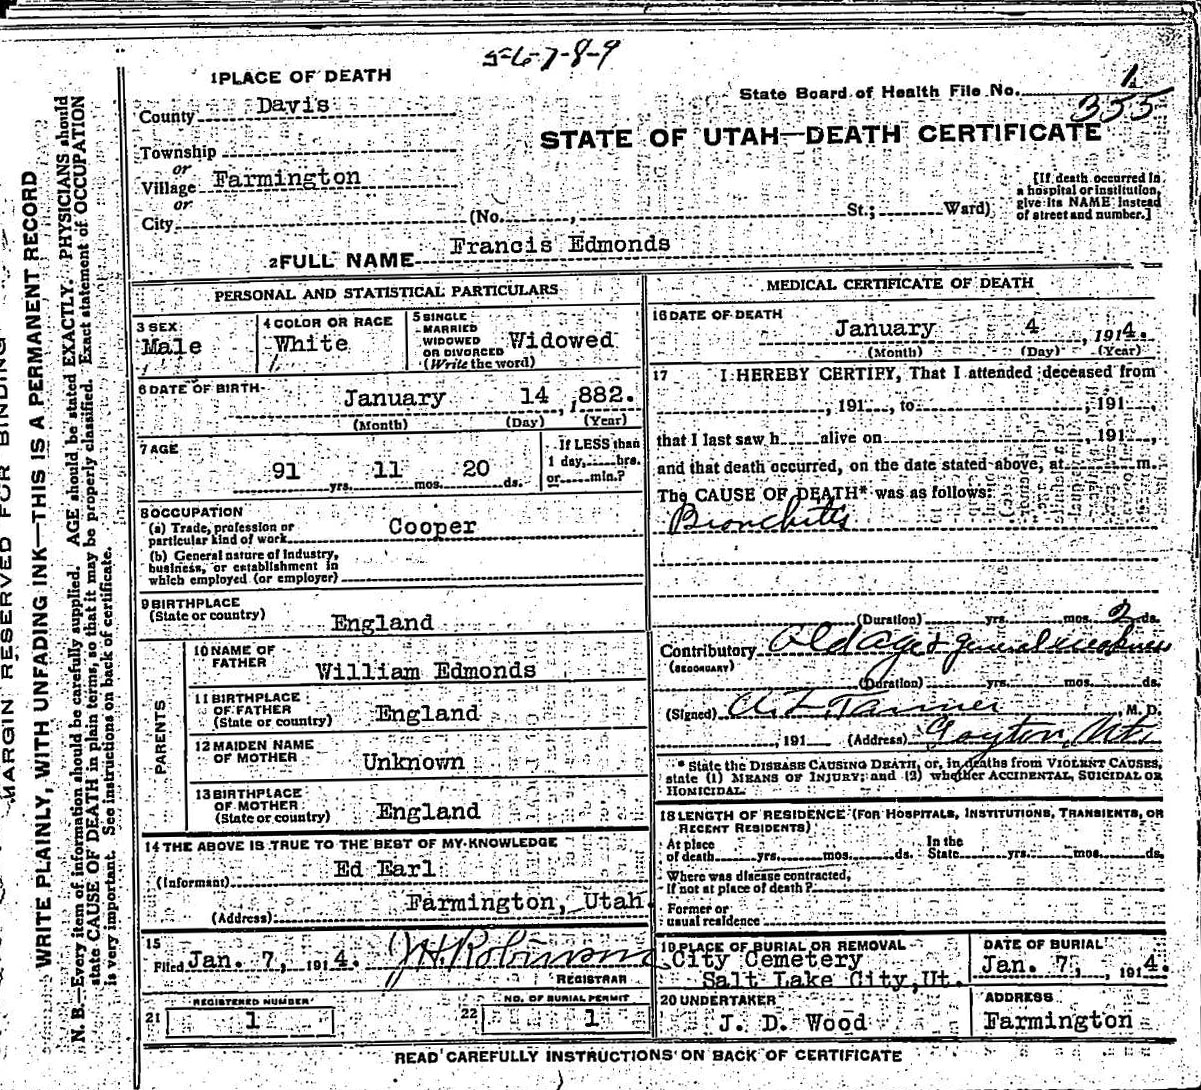 5-6-7-8-9
1 PLACE OF DEATH
County Davis
Township
or
Village Farmington
or
City (No. , St.; Ward)
State Board of Health File No. 1
355
STATE OF UTAH—DEATH CERTIFICATE
[If death occurred in
a hospital or institution,
give its NAME instead
of street and number.]
2 FULL NAME Francis Edmonds
PERSONAL AND STATISTICAL PARTICULARS
3 SEX
Male
4 COLOR OR RACE
White
5 SINGLE
MARRIED
WIDOWED
OR DIVORCED
(Write the word)
Widowed
6 DATE OF BIRTH
January 14, 1882.
(Month) (Day) (Year)
7 AGE
91 yrs. 11 mos. 20 ds.
If LESS than
1 day, hrs.
or min.?
8 OCCUPATION
(a) Trade, profession or
particular kind of work Cooper
(b) General nature of industry,
business, or establishment in
which employed (or employer)
9 BIRTHPLACE
(State or country) England
PARENTS
10 NAME OF
FATHER William Edmonds
11 BIRTHPLACE
OF FATHER
(State or country) England
12 MAIDEN NAME
OF MOTHER Unknown
13 BIRTHPLACE
OF MOTHER
(State or country) England
14 THE ABOVE IS TRUE TO THE BEST OF MY KNOWLEDGE
(Informant) Ed Earl
(Address) Farmington, Utah.
15
Filed Jan. 7, 1914. J.H. Robinson
REGISTRAR
REGISTERED NUMBER
21 1
NO. OF BURIAL PERMIT
22 1
MEDICAL CERTIFICATE OF DEATH
16 DATE OF DEATH
January 4, 1914.
(Month) (Day) (Year)
17 I HEREBY CERTIFY, That I attended deceased from
, 191 , to , 191 ,
that I last saw h alive on , 191 ,
and that death occurred, on the date stated above, at m.
The CAUSE OF DEATH* was as follows:
Bronchitis
(Duration) yrs. mos. 2 ds.
Contributory Old age & general weakness
(SECONDARY)
(Duration) yrs. mos. ds.
(Signed) Tanner M. D.
, 191 (Address) Layton, Ut.
* State the DISEASE CAUSING DEATH, or, in deaths from VIOLENT CAUSES,
state (1) MEANS OF INJURY; and (2) whether ACCIDENTAL, SUICIDAL OR
HOMICIDAL.
18 LENGTH OF RESIDENCE (FOR HOSPITALS, INSTITUTIONS, TRANSIENTS, OR
RECENT RESIDENTS)
At place
of death yrs. mos. ds.
In the
State yrs. mos. ds.
Where was disease contracted,
If not at place of death?
Former or
usual residence
19 PLACE OF BURIAL OR REMOVAL
City Cemetery
Salt Lake City, Ut.
DATE OF BURIAL
Jan. 7, , 1914.
20 UNDERTAKER
J. D. Wood
ADDRESS
Farmington
READ CAREFULLY INSTRUCTIONS ON BACK OF CERTIFICATE
MARGIN RESERVED FOR BINDING
WRITE PLAINLY, WITH UNFADING INK—THIS IS A PERMANENT RECORD
N. B.—Every item of information should be carefully supplied. AGE should be stated EXACTLY. PHYSICIANS should
state CAUSE OF DEATH in plain terms, so that it may be properly classified. Exact statement of OCCUPATION
is very important. See instructions on back of certificate.